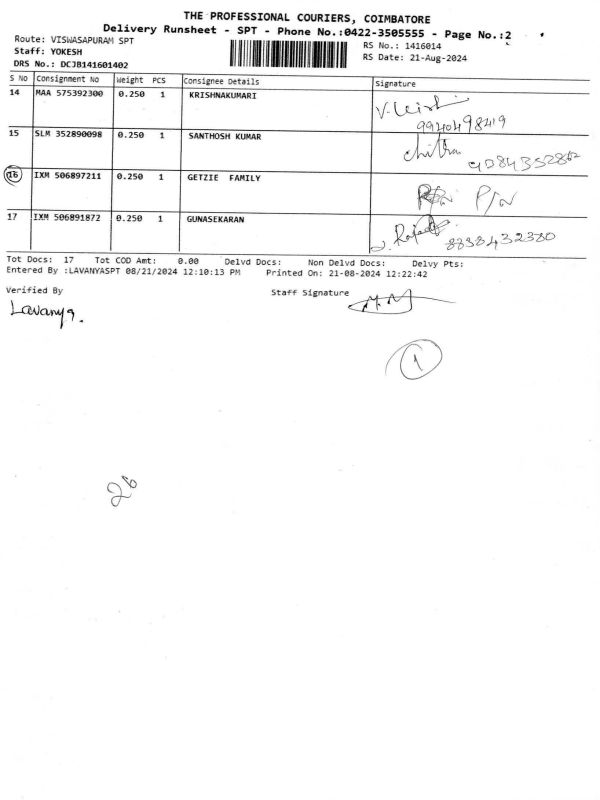 THE PROFESSIONAL COURIERS, COIMBATORE
Delivery Runsheet - SPT - Phone No.:0422-3505555 - Page No.:2
Route: VISWASAPURAM SPT
RS No.: 1416014
Staff: YOKESH
RS Date: 21-Aug-2024
DRS No.: DCJB141601402
S No Consignment No Weight PCS Consignee Details Signature
14 MAA 575392300 0.250 1 KRISHNAKUMARI
9940498419
15 SLM 352890098 0.250 1 SANTHOSH KUMAR Chitra
16 IXM 506897211 0.250 1 GETZIE FAMILY P/N
17 IXM 506891872 0.250 1 GUNASEKARAN
8838432380
Tot Docs: 17 Tot COD Amt: 0.00 Delvd Docs: Non Delvd Docs: Delvy Pts:
Entered By :LAVANYASPT 08/21/2024 12:10:13 PM Printed On: 21-08-2024 12:22:42
Verified By Staff Signature
Lavanya.
1
26